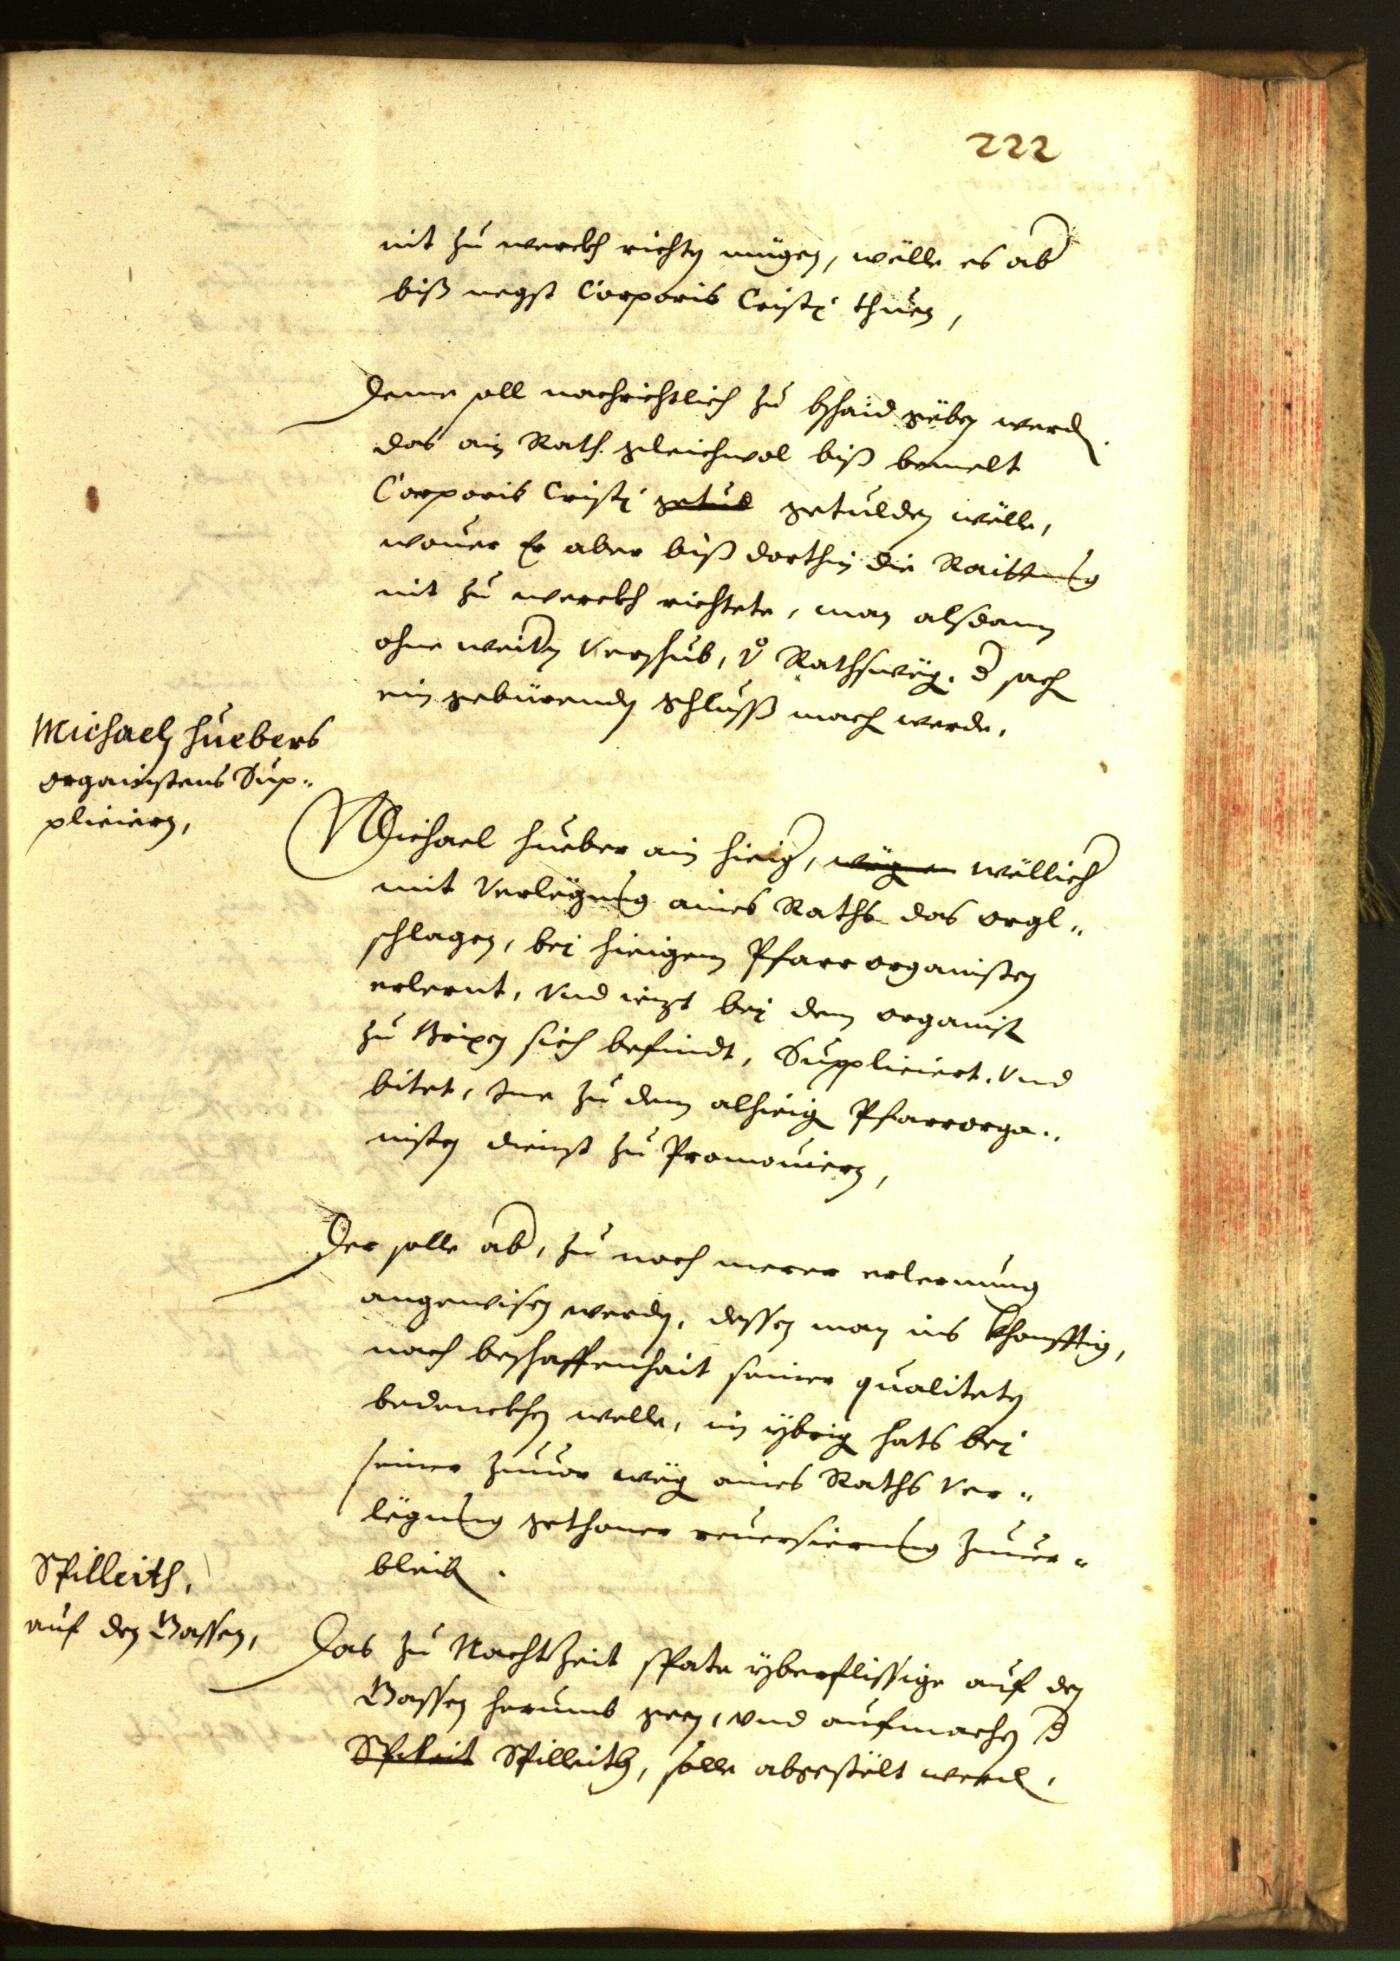 222
nit zu werckh richten mügen, wölle es aber
biß negst Corporis Cristj thuen,
Deme soll nachrichtlich zu bschaid göben werden.
das ain Rath gleichwol biß bemelt
Corporis Cristj getuld getulden wölle,
wouer Er aber biß dorthin die Raittung
nit zu werckh richtete, man alsdann
ohne weitern Verschub, Rathswög. der sach
ein gebürenden schluss mach werde.
Michaeln Huebers
organistens Sup-
plicieren,
Michael Hueber ain hieiger, wögen wöllicher
mit Verlögung aines Raths das orgl-
schlagen, bej hieigem Pfarrorganisten
erlernt, Vnd iezt bej dem organist
zu Brixen sich befindt, Suppliciert. Vnd
bitet, Ine zu dem alhieigen Pfarrorga-
nisten dienst zu Promouiern,
Der solle aber, zu noch merer erlernung
angewisen werden, dessen man ins khonfftig,
nach beschaffenhait seiner qualiteten
bedenckhen welle, im ybrigen hats bej
seiner zuuor wögen aines Raths Ver-
lögung gethaner reuersierung zuuer-
bleiben.
Spilleith,
auf den Gassen,
Das zu Nachtzeit spate yberflissige auf den
Gassen herumb geen, vnd aufmachen der
Spileit Spilleith, solle abgestölt werden.